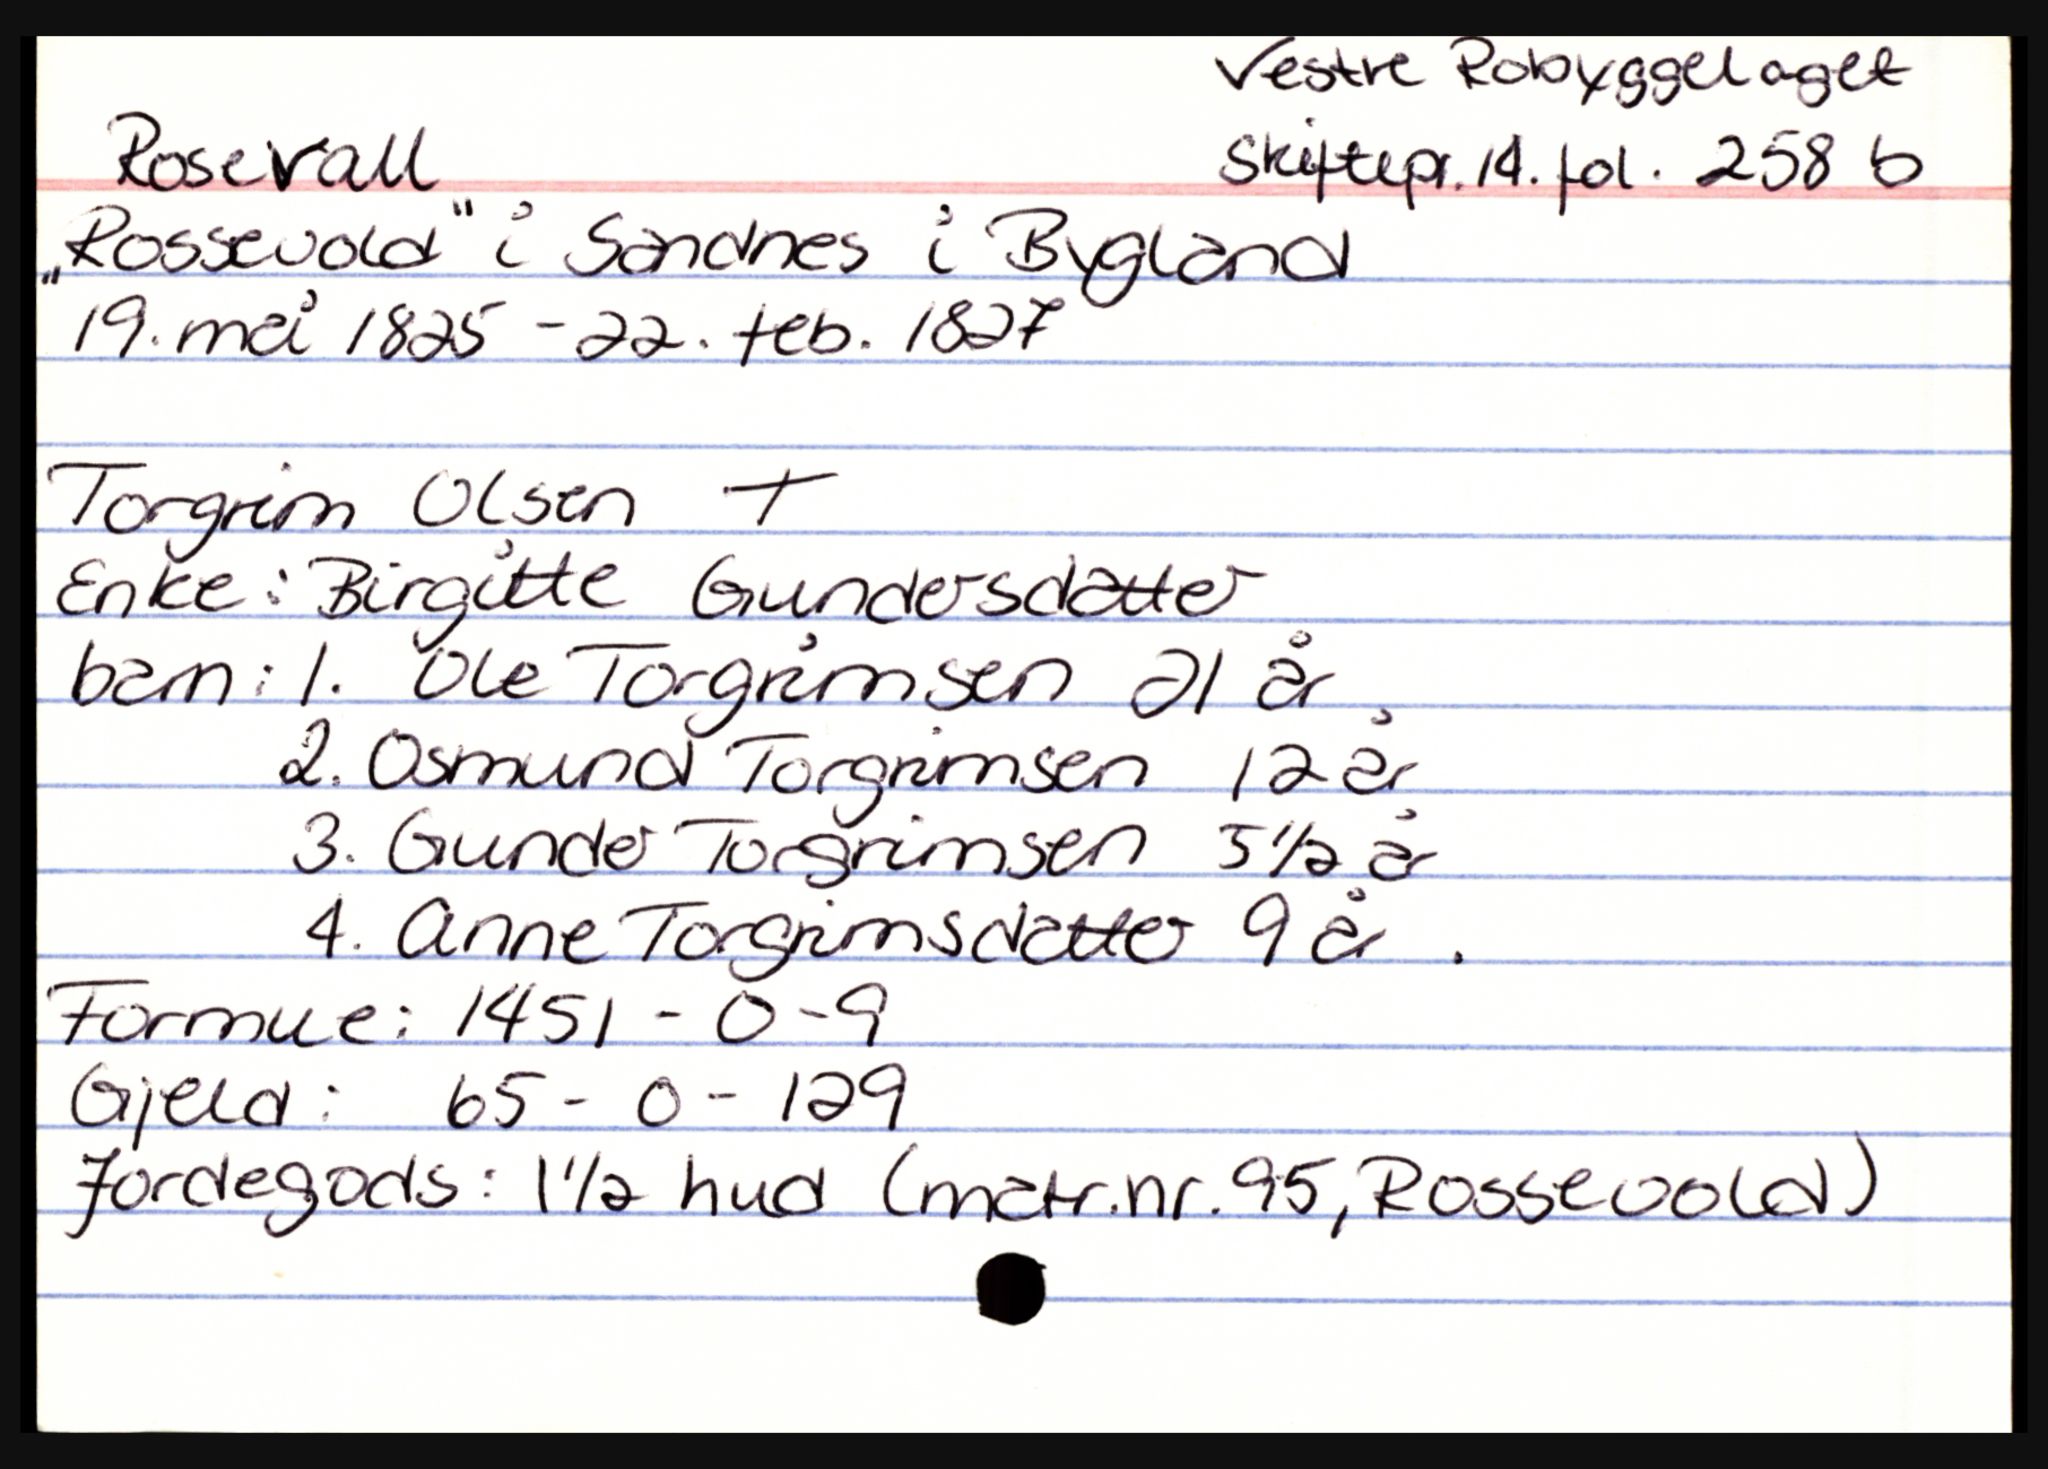 Vestre Robyggelaget
Rosevall
Skiftepr. 14. fol. 258 b
„Rossevold" i Sandnes i Bygland
19. mai 1825 - 22. feb. 1827
Torgrim Olsen +
Enke: Birgitte Gundersdatter
barn: 1. Ole Torgrimsen 21 år
2. Osmund Torgrimsen 12 år
3. Gunder Torgrimsen 5 1/2 år
4. Anne Torgrimsdatter 9 år.
Formue: 1451 - 0 - 9
Gjeld: 65 - 0 - 129
Jordegods: 1 1/2 hud (matr.nr. 95, Rossevold)